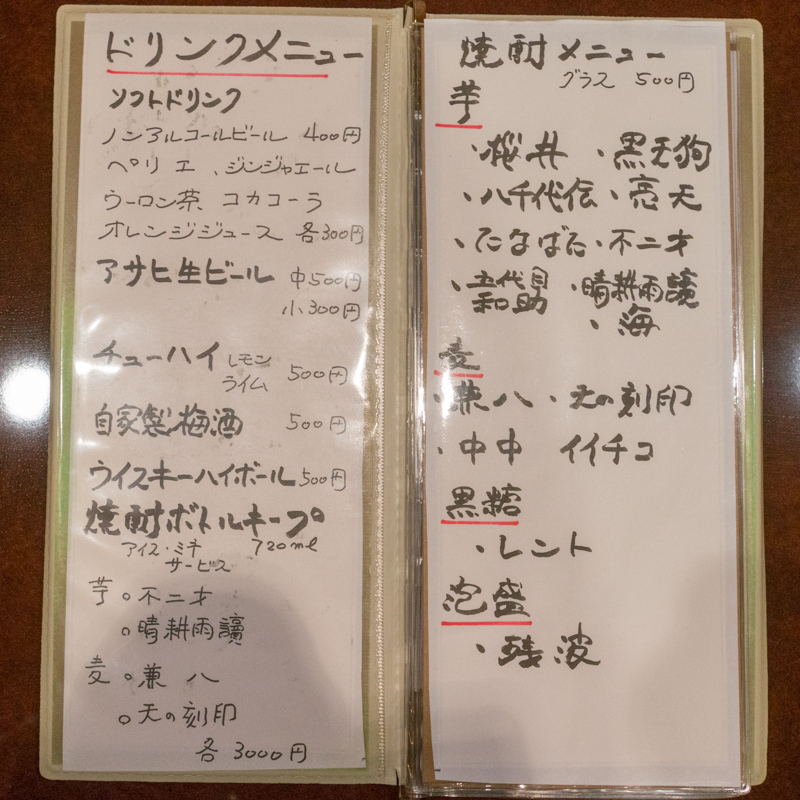 ドリンクメニュー
ソフトドリンク
ノンアルコールビール 400円
ペリエ、ジンジャエール
ウーロン茶 コカコーラ
オレンジジュース 各300円
アサヒ生ビール 中500円
小300円
チューハイ レモン
ライム 500円
自家製梅酒 500円
ウイスキーハイボール 500円
焼酎ボトルキープ
アイス・ミネ 720ml
サービス
芋 。不二才
。晴耕雨讀
麦 。兼八
。天の刻印
各 3000円
焼酎メニュー
グラス 500円
芋
・桜井 ・黒天狗
・八千代伝 ・亮天
・たなばた ・不二才
・五代目
和助 ・晴耕雨讀
・海
麦
・兼八 ・天の刻印
・中中 イイチコ
黒糖
・レント
泡盛
・残波